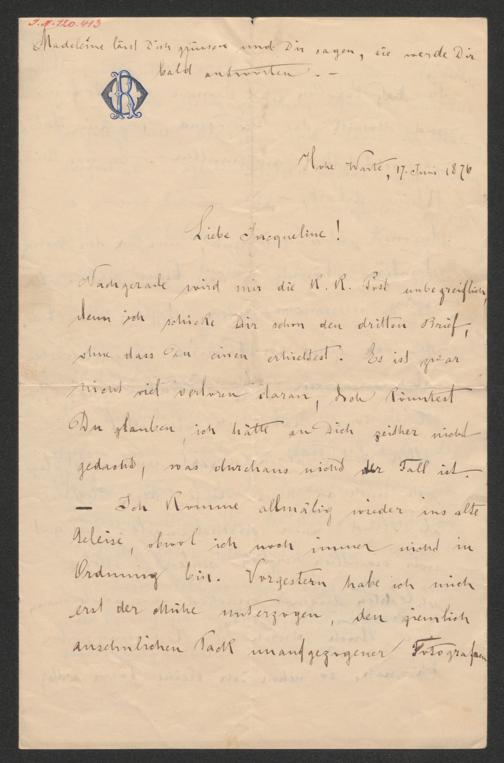 J.N. 120.413
Madeleine lässt Dich grüssen und Dir sagen, sie werde Dir
bald antworten. –
Hohe Warte, 17. Juni 1876
Liebe Jacqueline!
Nachgerade wird mir die K. K. Post unbegreiflich,
denn ich schicke Dir schon den dritten Brief,
ohne dass Du einen erhieltest. Es ist zwar
nicht viel verloren daran, doch könntest
Du glauben, ich hätte an Dich zeither nicht
gedacht, was durchaus nicht der Fall ist.
– Ich komme allmälig wieder ins alte
Geleise, obwol ich noch immer nicht in
Ordnung bin. Vorgestern habe ich mich
erst der Mühe unterzogen, den ziemlich
ansehnlichen Pack unaufgezogener Fotografien